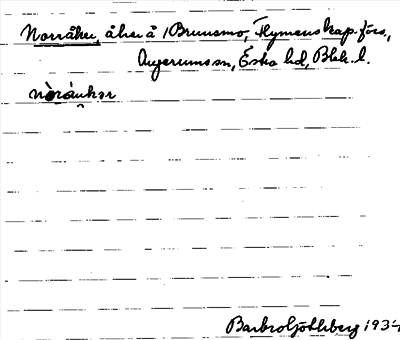 Norråker, åker å 1 Brunsmo, Flymens kap.förs.,
Augerums sn, Östra hd, Blek. l.
nòråukər
Barbro Göthberg 1934